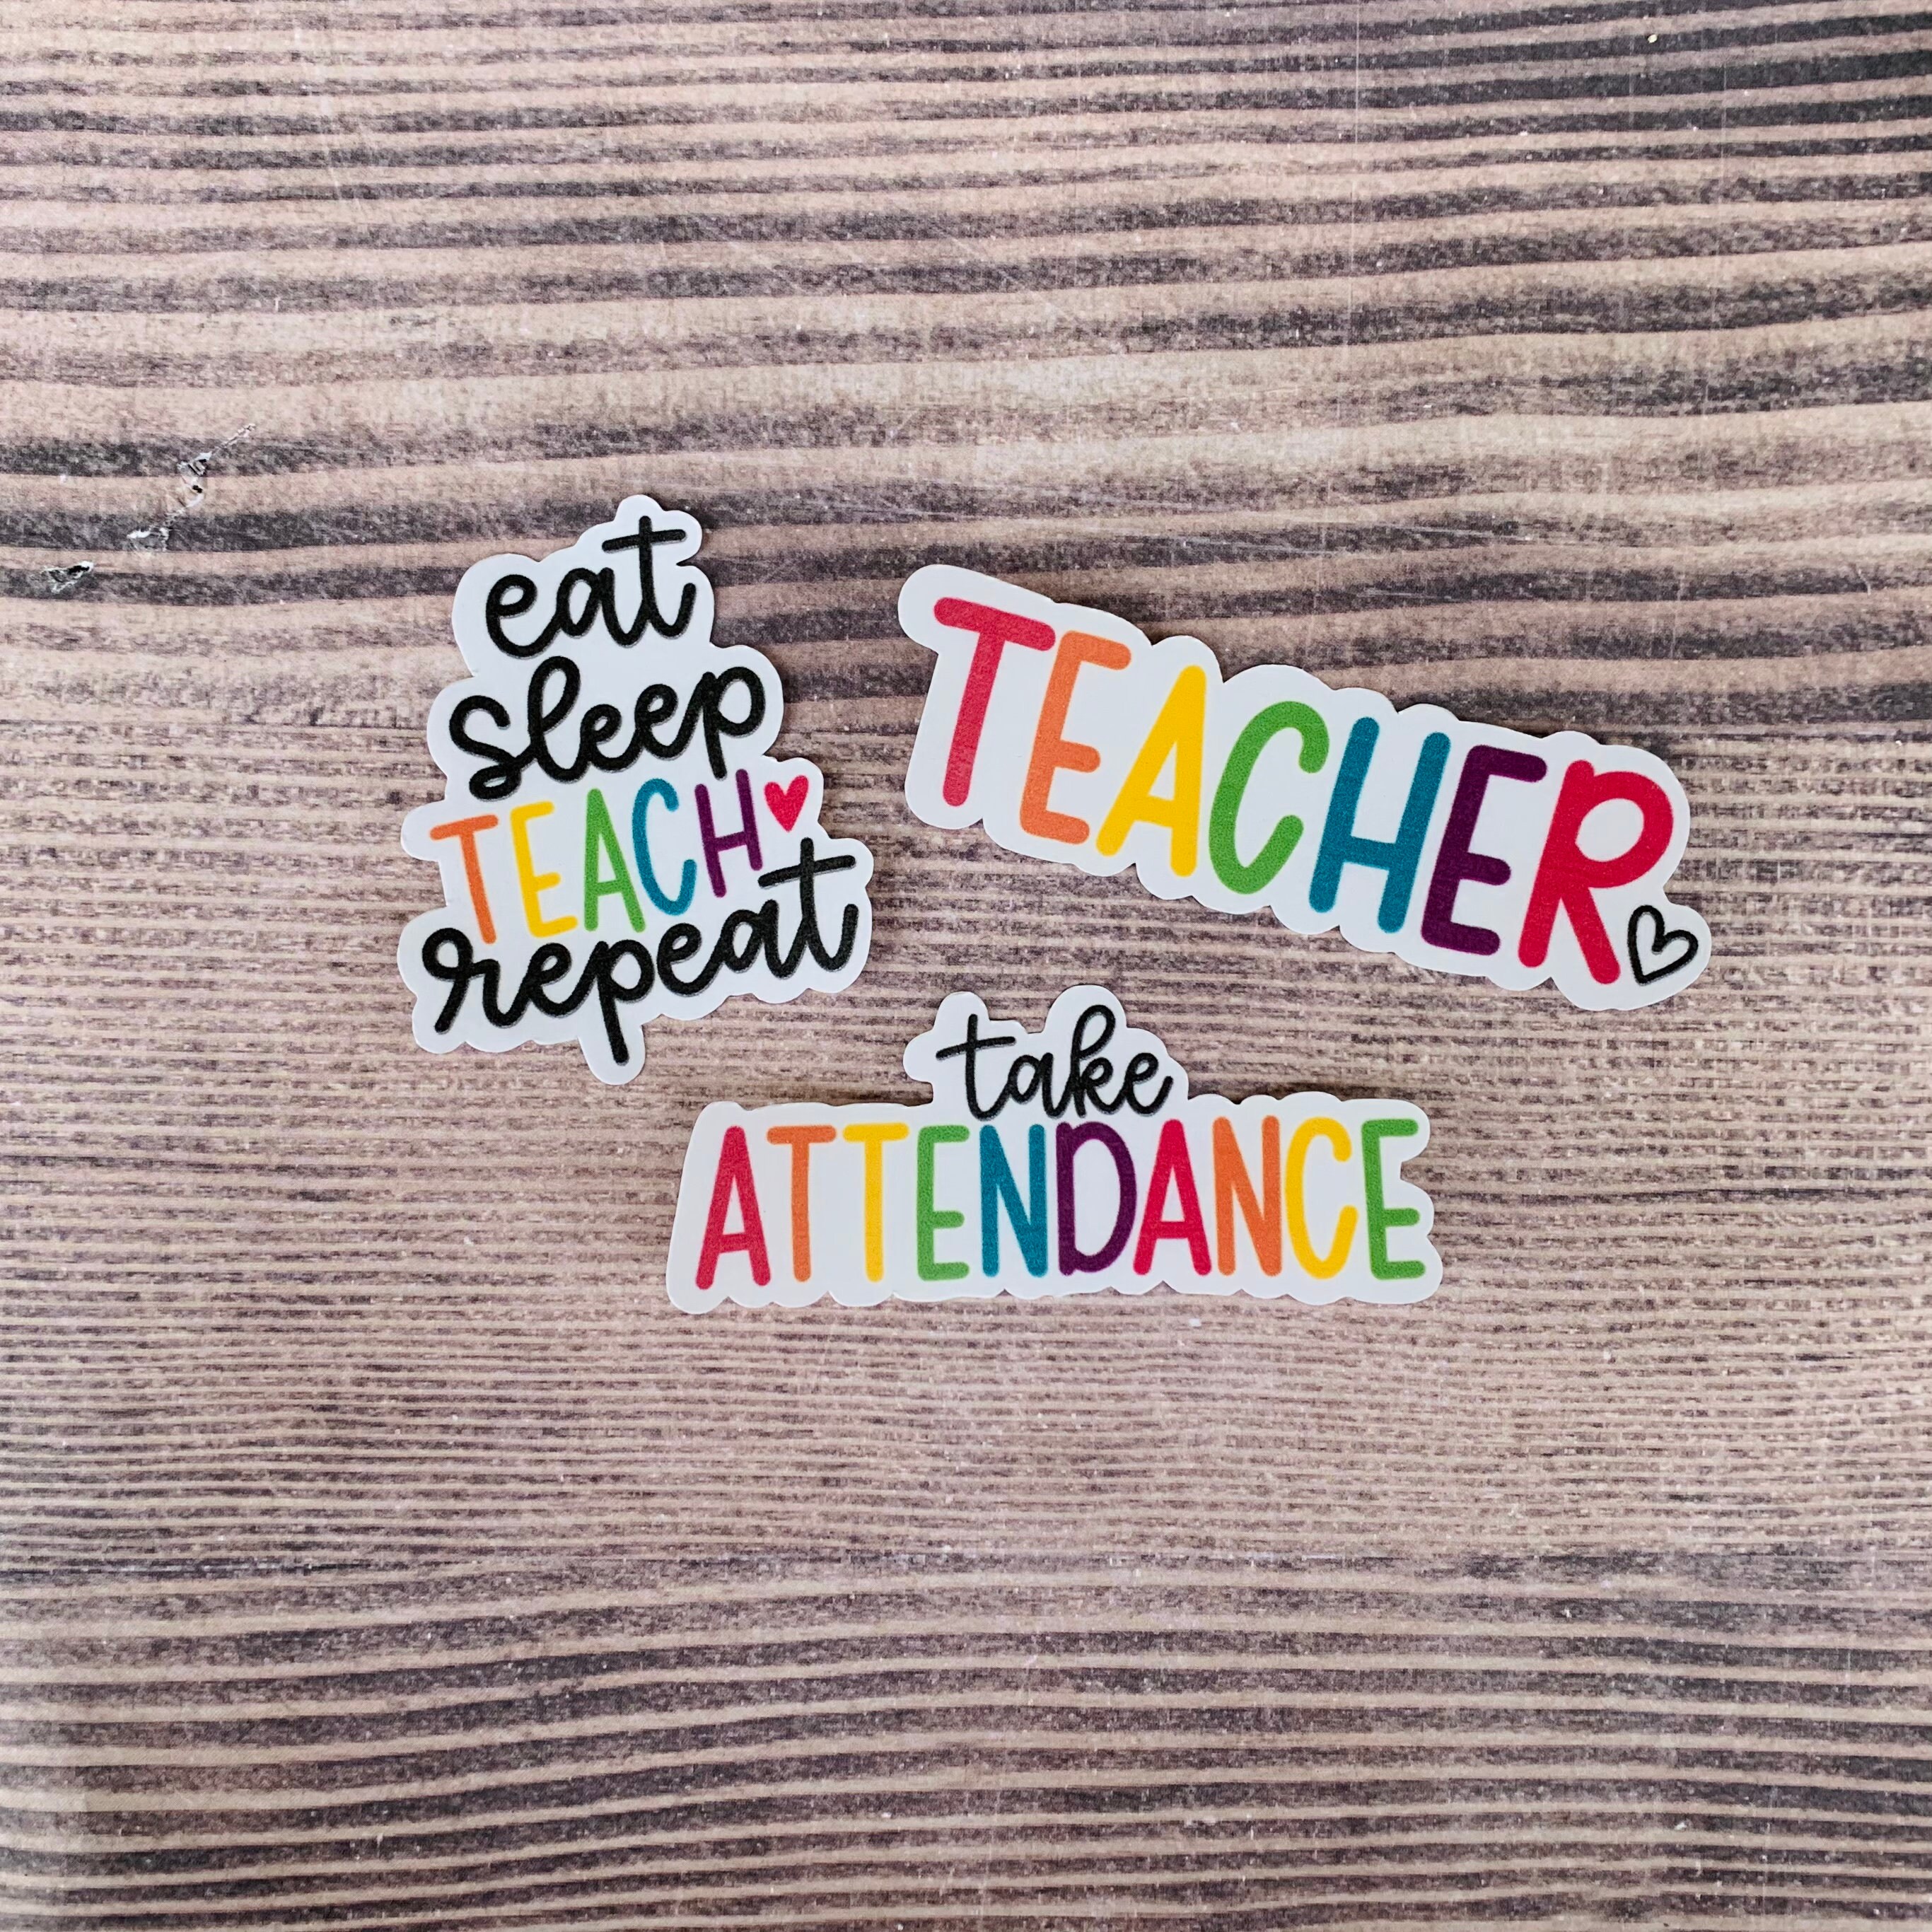 eat
sleep
TEACH
repeat
TEACHER
take
ATTENDANCE